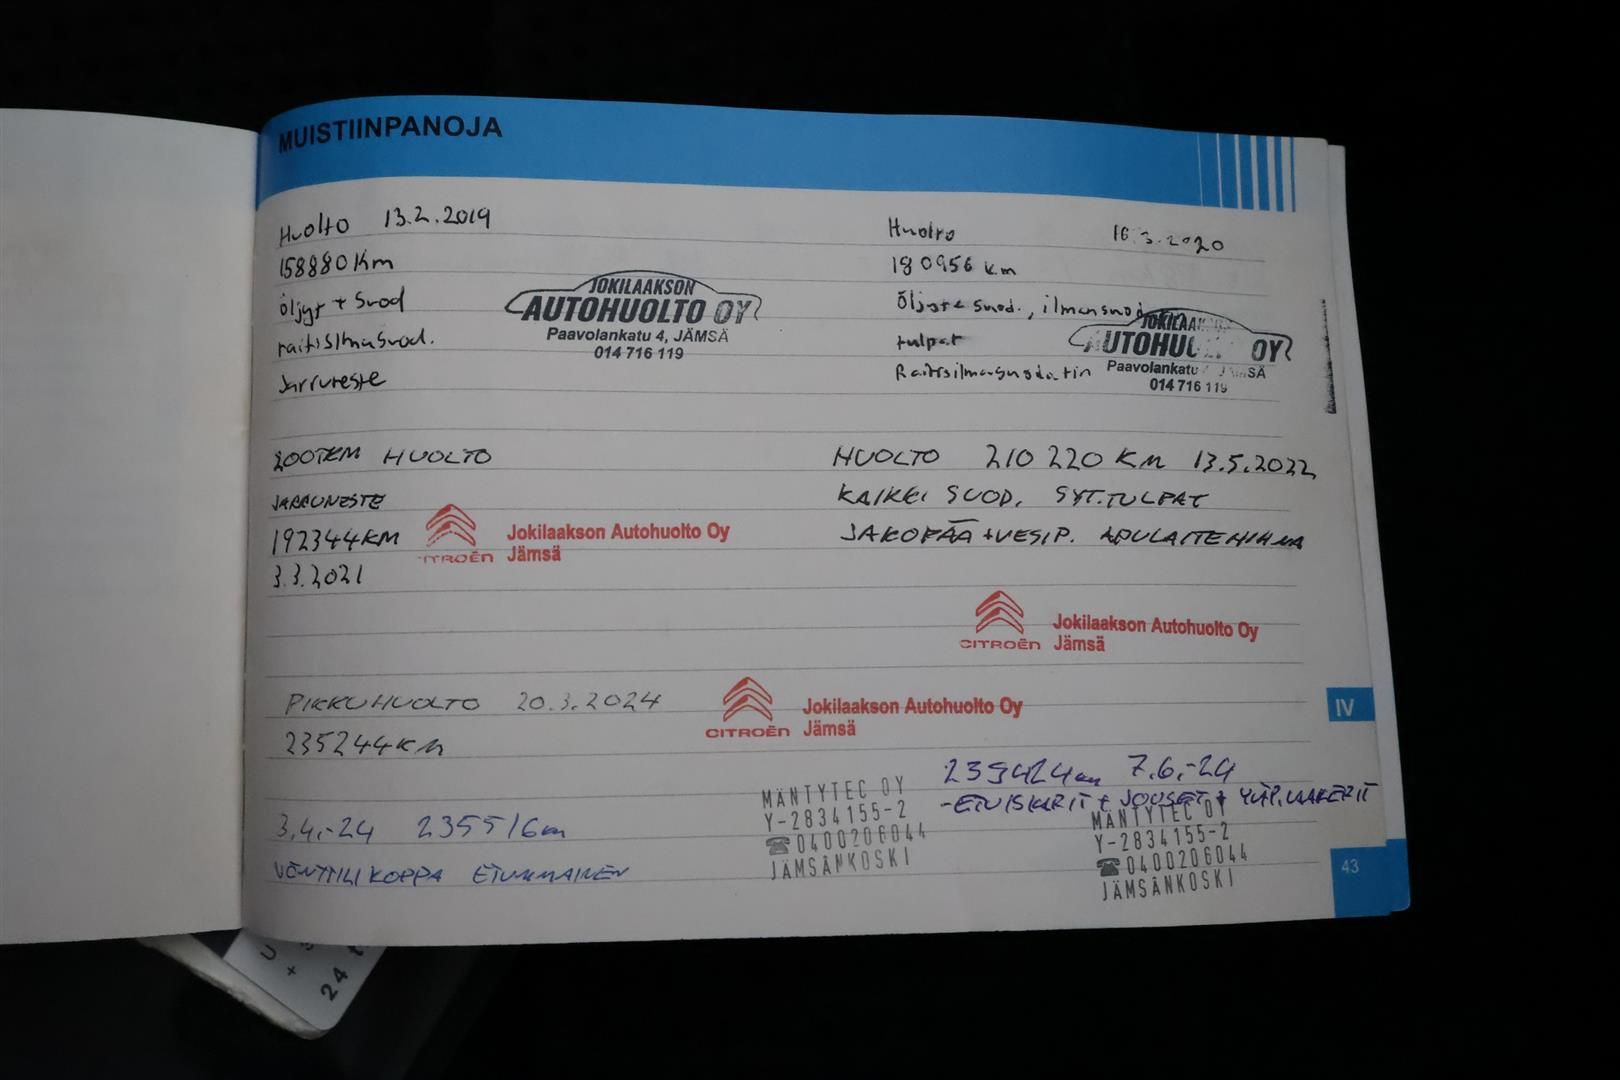 MUISTIINPANOJA
Huolto 13.2.2019
158880 Km
öljyt + suod
raitisilmasuod.
Jarruneste
JOKILAAKSON
AUTOHUOLTO OY
Paavolankatu 4, JÄMSÄ
014 716 119
Huolto 16.3.2020
180956 km
Öljyt + suod., ilmansuod
tulpat
Raitisilmasuodatin
JOKILAA
AUTOHU OY
Paavolankatu SÄ
014 716 119
200TKM HUOLTO
JARRUNESTE
192344KM
3.3.2021
CITROËN
Jokilaakson Autohuolto Oy
Jämsä
HUOLTO 210 220 KM 13.5.2022
KAIKKI SUOD. SYT.TULPAT
JAKOPÄÄ + VESIP. APULAITEHIHNA
CITROËN
Jokilaakson Autohuolto Oy
Jämsä
PIKKUHUOLTO 20.3.2024
235244KM
CITROËN
Jokilaakson Autohuolto Oy
Jämsä
3.4.-24 235516km
VENTTIILIKOPPA ETUMMAINEN
MÄNTYTEC OY
Y-2834155-2
☎0400206044
JÄMSÄNKOSKI
239424km 7.6.-24
-ETUISKARIT + JOUSET + YLÄP.LAAKERIT
MÄNTYTEC OY
Y-2834155-2
☎0400206044
JÄMSÄNKOSKI
IV
43
U
+
24